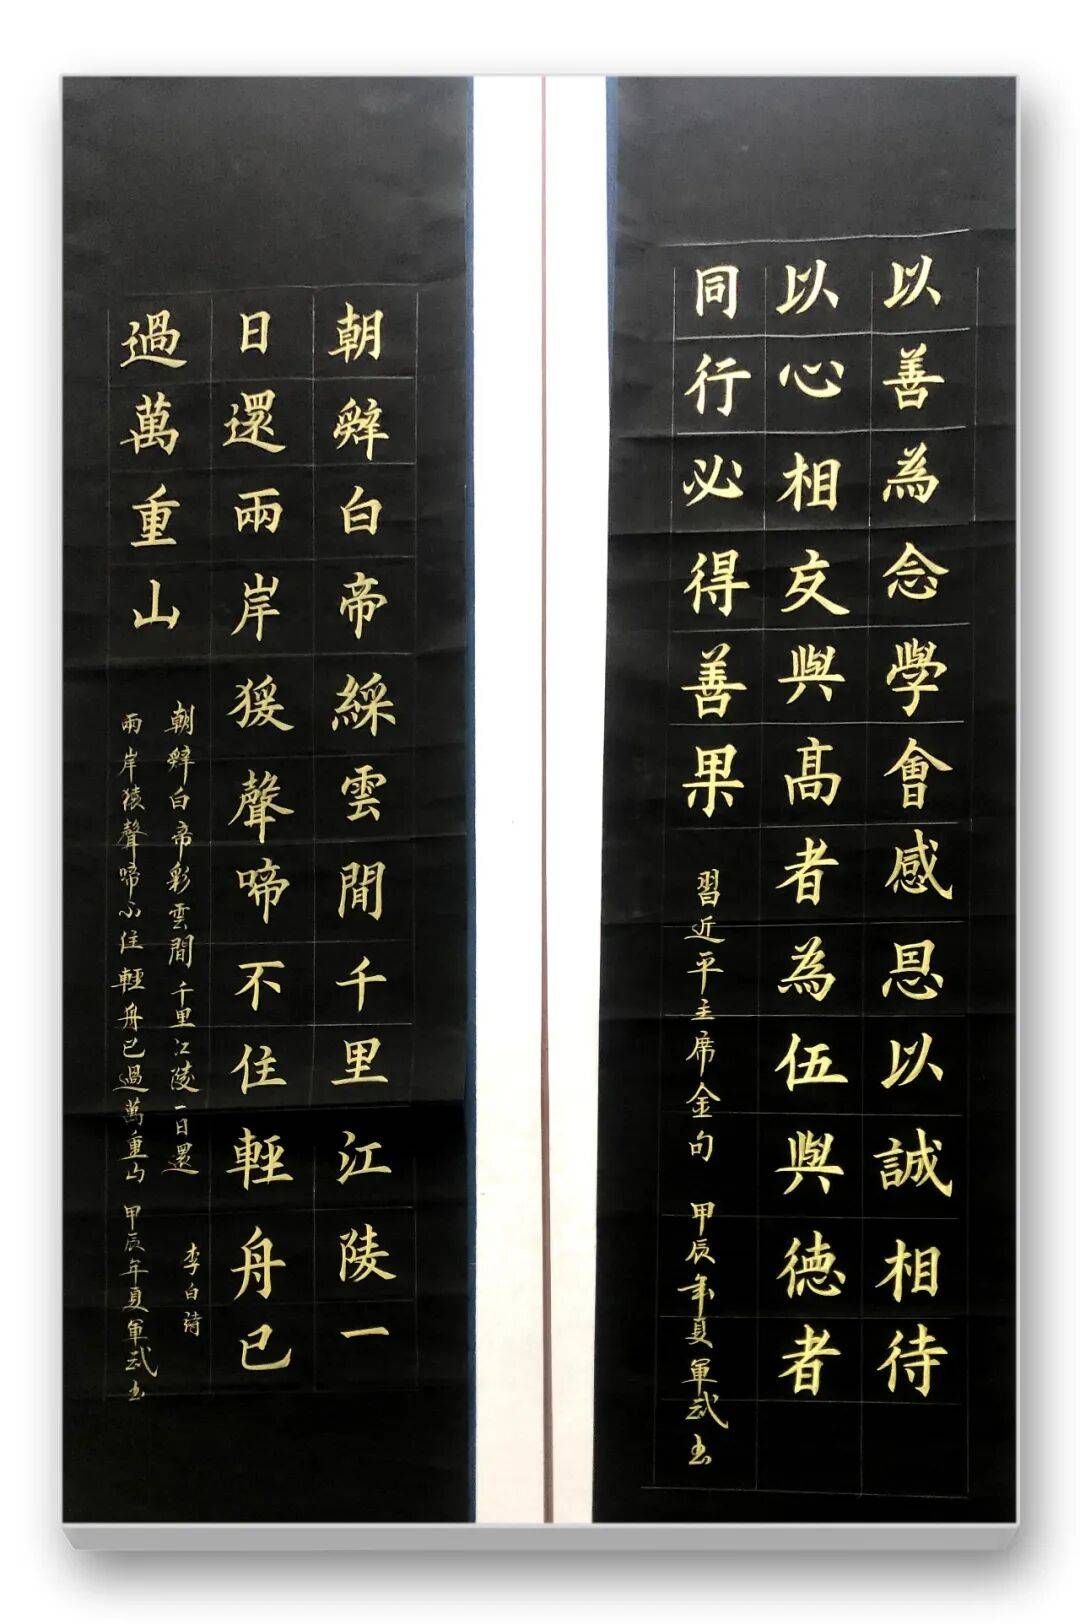 以善為念學會感恩以誠相待
以心相友與高者為伍與德者
同行必得善果
習近平主席金句 甲辰年夏軍武書
朝辤白帝綵雲間千里江陵一
日還兩岸猨聲啼不住輕舟已
過萬重山
朝辤白帝彩雲間千里江陵一日還 李白詩
兩岸猿聲啼不住輕舟已過萬重山 甲辰年夏軍武書